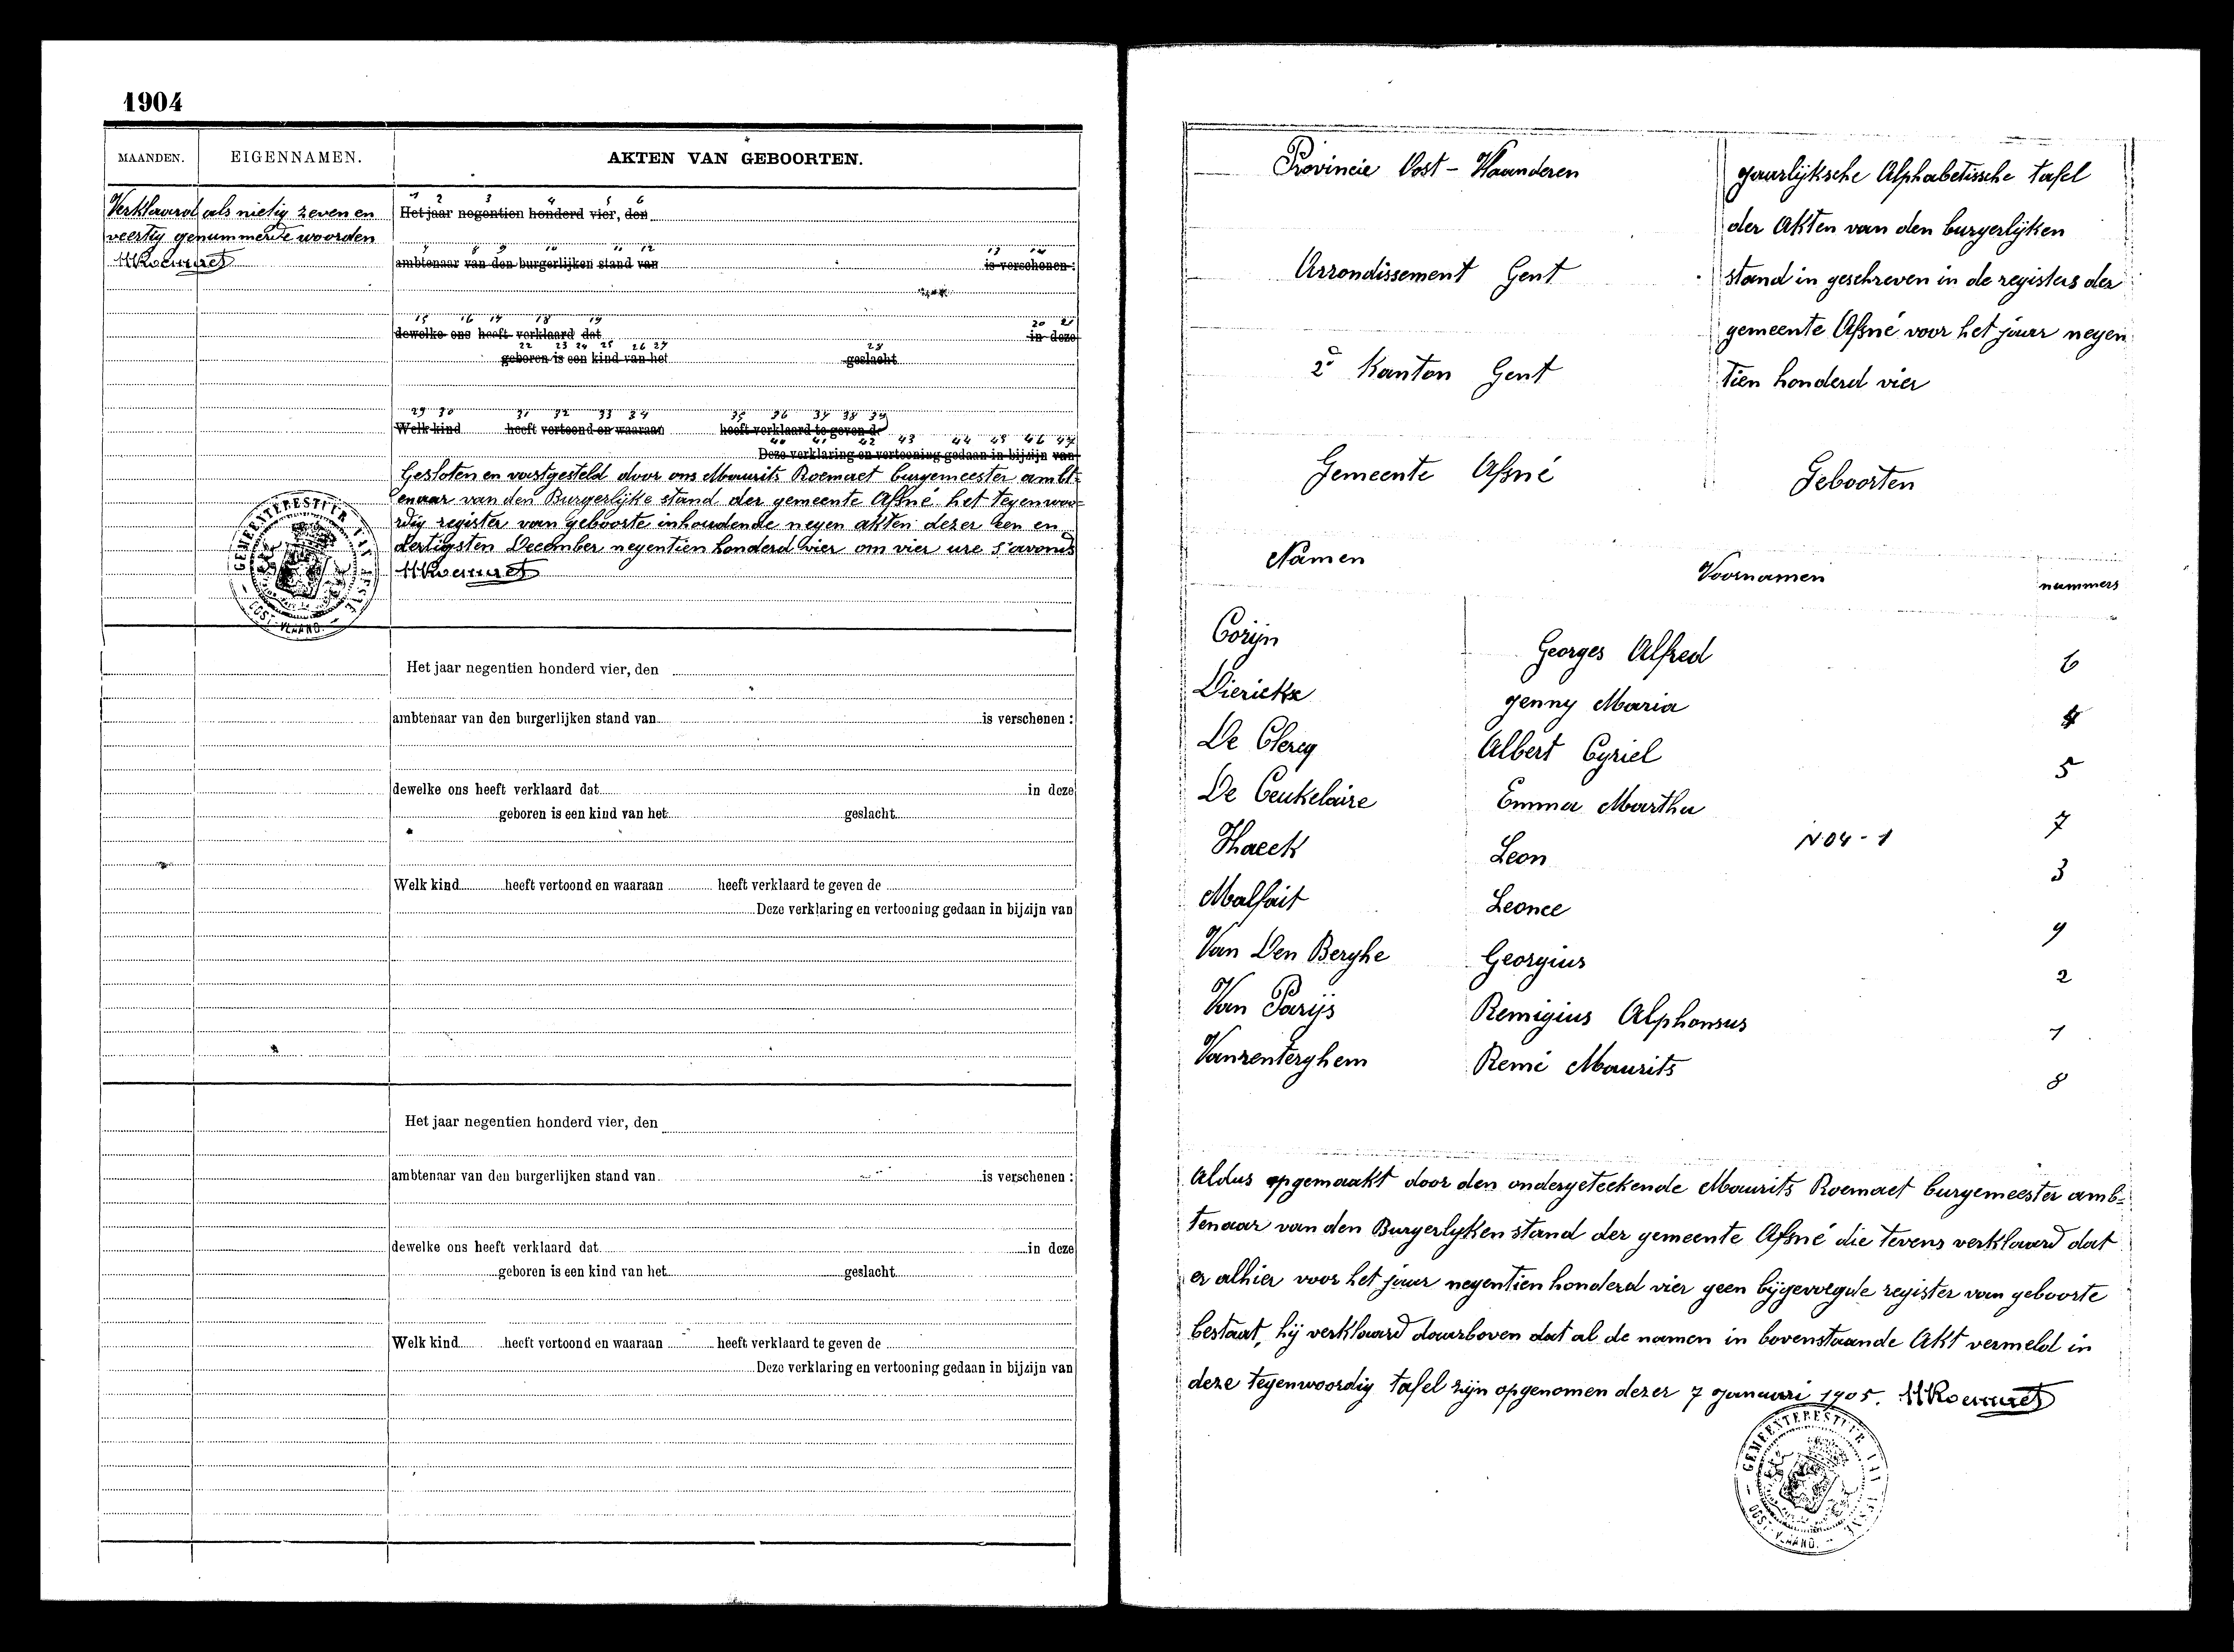 1904
MAANDEN. EIGENNAMEN. AKTEN VAN GEBOORTEN.
Verklaard als nietig zeven en
veertig genummerde woorden
MRoemaet
1 2 3 4 5 6
Het jaar negentien honderd vier, den
7 8 9 10 11 12 13 14
ambtenaar van den burgerlijken stand van is verschenen:
15 16 17 18 19 20 21
dewelke ons heeft verklaard dat in deze
22 23 24 25 26 27 28
geboren is een kind van het geslacht
29 30 31 32 33 34 35 36 37 38 39
Welk kind heeft vertoond en waaraan heeft verklaard te geven de
40 41 42 43 44 45 46 47
Deze verklaring en vertooning gedaan in bijzijn van
Gesloten en vastgesteld door ons Maurits Roemaet burgemeester ambt-
enaar van den Burgerlijke stand der gemeente Afsné het tegenwoo-
rdig register van geboorte inhoudende negen akten dezer een en
dertigsten December negentien honderd vier om vier ure s'avonds
MRoemaet
GEMEENTEBESTUUR VAN AFSNÉ
OOST-VLAAND.
Het jaar negentien honderd vier, den
ambtenaar van den burgerlijken stand van is verschenen :
dewelke ons heeft verklaard dat in deze
geboren is een kind van het geslacht
Welk kind heeft vertoond en waaraan heeft verklaard te geven de
Deze verklaring en vertooning gedaan in bijzijn van
Het jaar negentien honderd vier, den
ambtenaar van den burgerlijken stand van is verschenen :
dewelke ons heeft verklaard dat in deze
geboren is een kind van het geslacht
Welk kind heeft vertoond en waaraan heeft verklaard te geven de
Deze verklaring en vertooning gedaan in bijzijn van
Provincie Oost-Vlaanderen
Arrondissement Gent
2e Kanton Gent
Gemeente Afsné
Jaarlijksche Alphabetissche tafel
der Akten van den burgerlijken
stand in geschreven in de registers der
gemeente Afsné voor het jaar negen
tien honderd vier
Geboorten
Namen Voornamen nummers
Corijn Georges Alfred 6
Dierickx Jenny Maria 4
De Clercq Albert Cyriel 5
De Ceukelaire Emma Martha 7
Haeck Leon N 04-1 3
Malfait Leonce 9
Van Den Berghe Georgius 2
Van Parijs Remigius Alphonsus 1
Vanrenterghem Remé Maurits 8
Aldus opgemaakt door den ondergeteekende Maurits Roemaet burgemeester amb-
tenaar van den Burgerlyken stand der gemeente Afsné die tevens verklaard dat
er alhier voor het jaar negentien honderd vier geen bijgevoegde register van geboorte
bestaat, hij verklaard daarboven dat al de namen in bovenstaande Akt vermeld in
deze tegenwoordig tafel zijn opgenomen dezer 7 Januari 1905. MRoemaet
GEMEENTEBESTUUR VAN AFSNÉ
OOST-VLAAND.